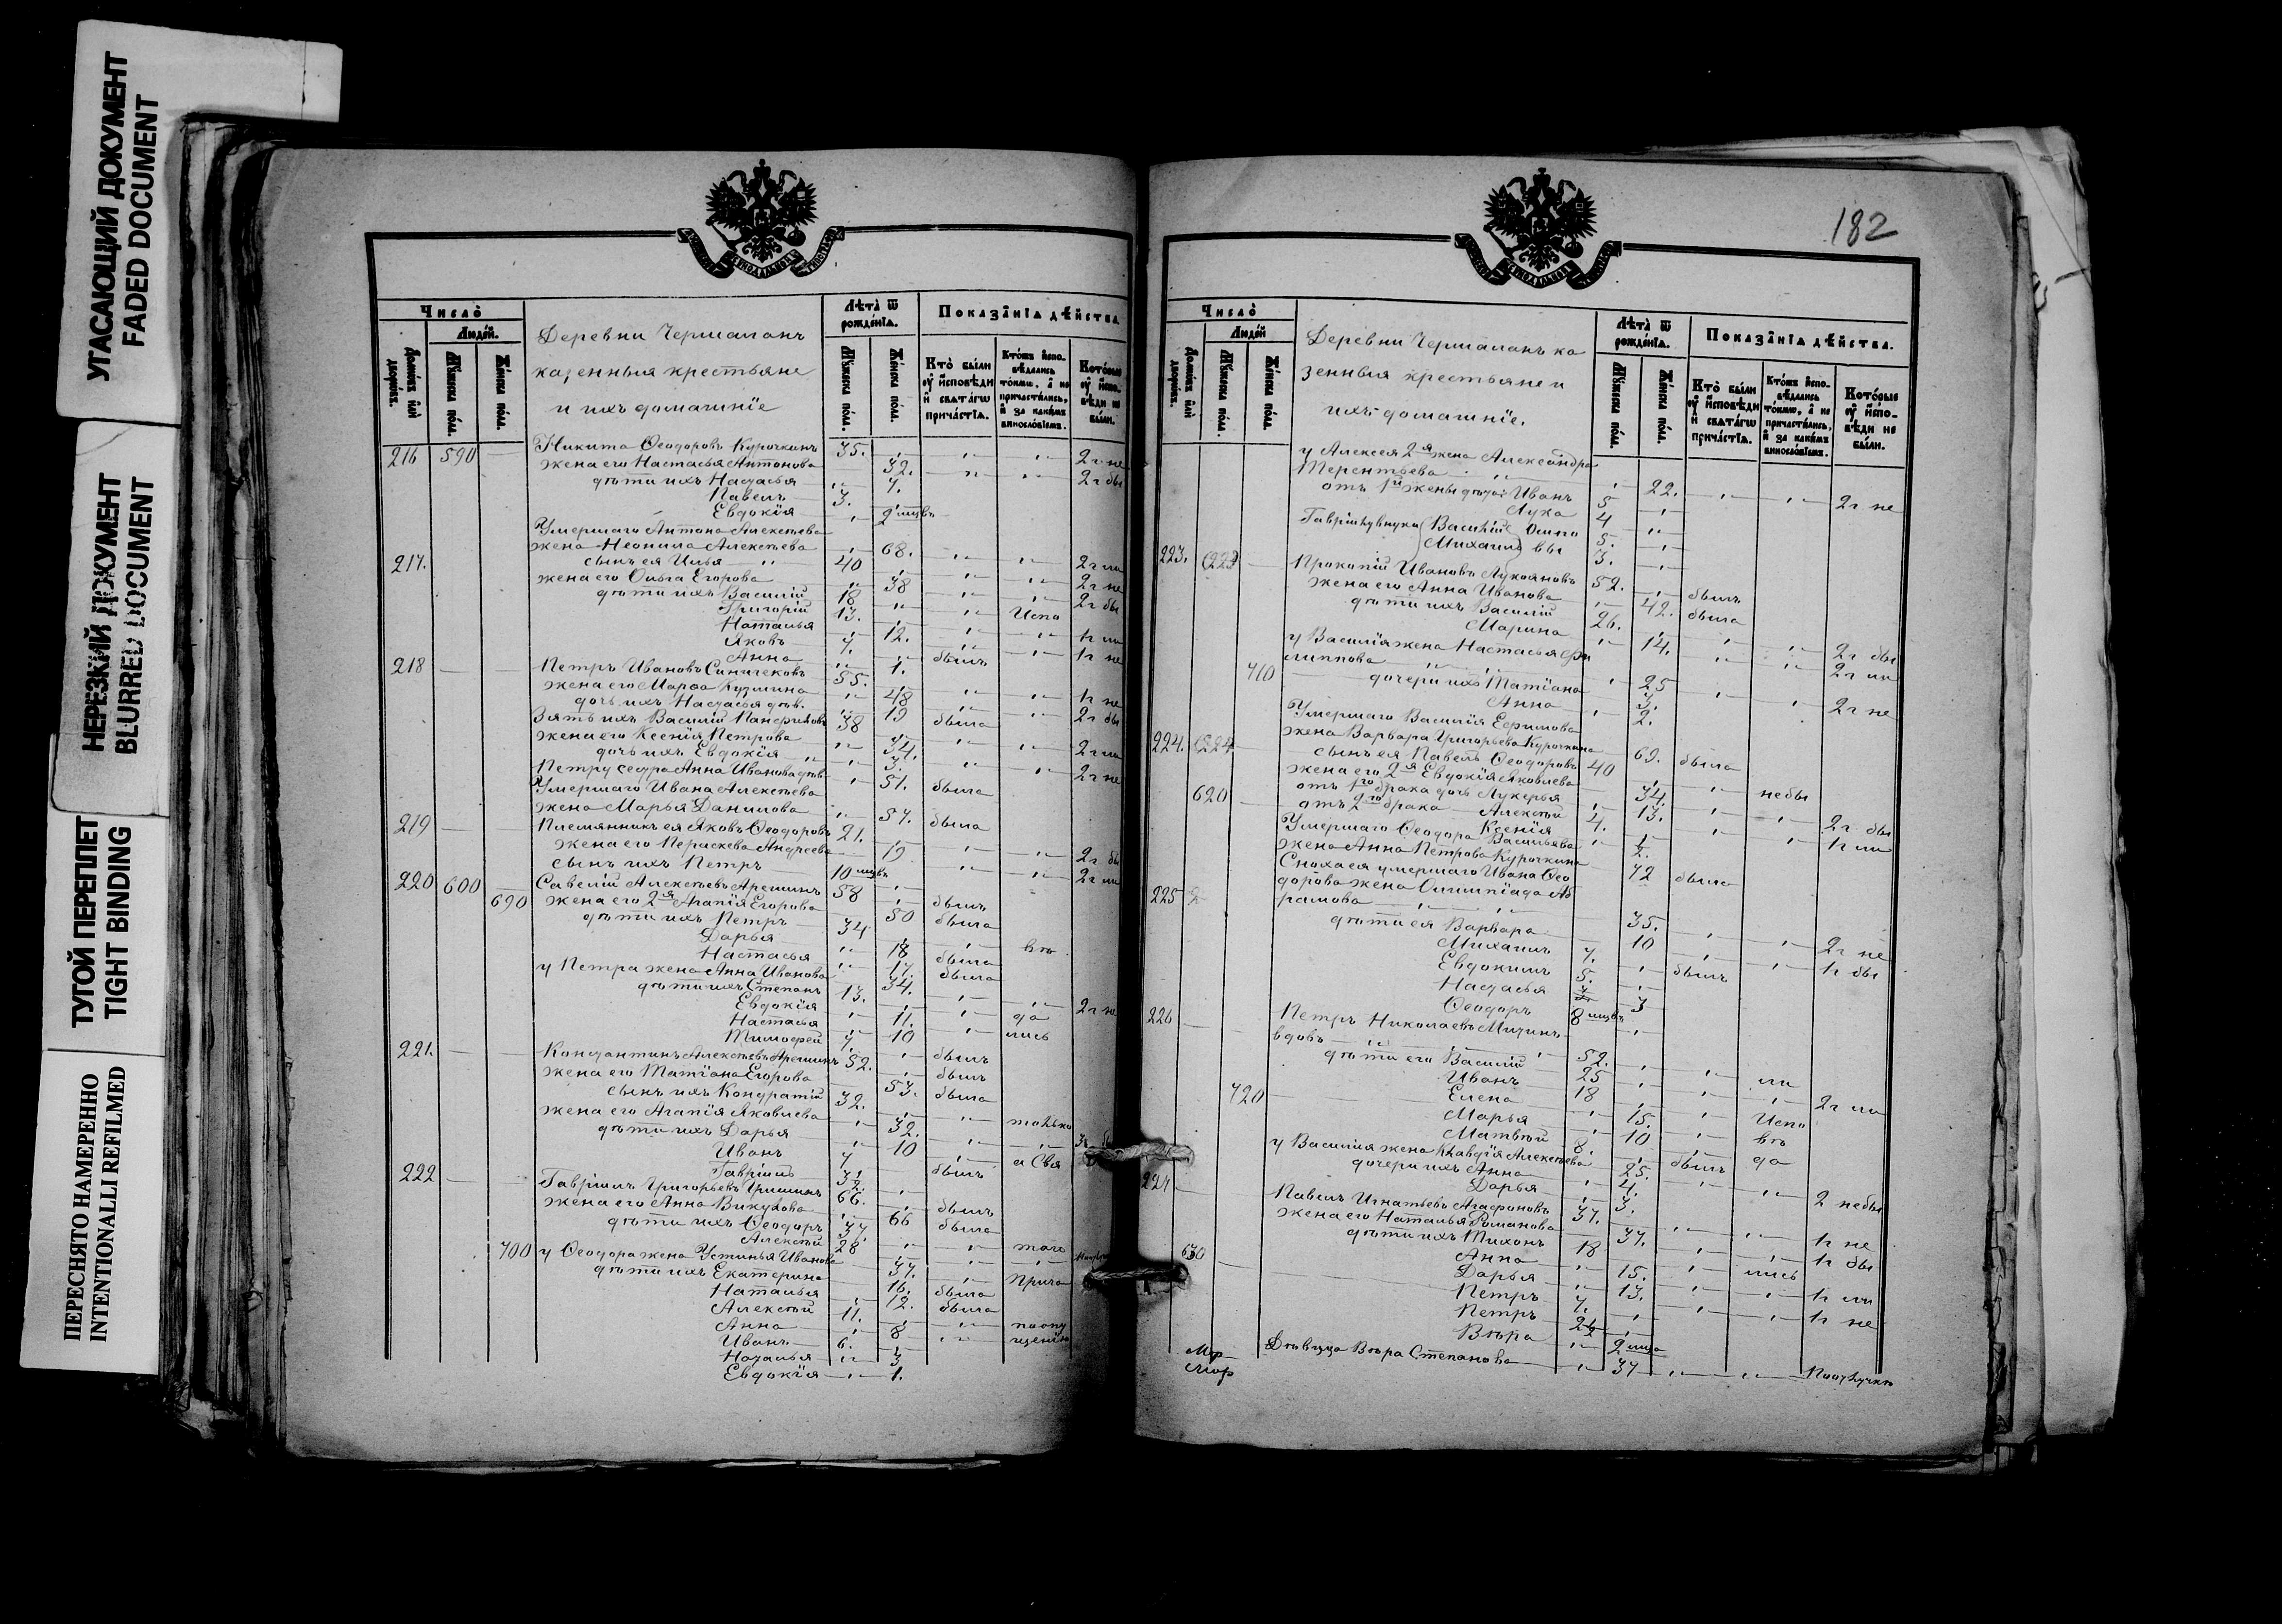 УГАСАЮЩИЙ ДОКУМЕНТ
FADED DOCUMENT
НЕРЕЗКИЙ ДОКУМЕНТ
BLURRED DOCUMENT
ТУГОЙ ПЕРЕПЛЕТ
TIGHT BINDING
ПЕРЕСНЯТО НАМЕРЕННО
INTENTIONALLI REFILMED
Число
Людей.
Домовъ или дворовъ.
Мужеска полу.
Женска полу.
Деревни Чермаланъ
казенныя крестьяне
и ихъ домашніе
Лѣта ѿ рожденія.
Мужеска полу.
Женска полу.
Показанія дѣйства.
Кто были у исповѣди и святагѡ причастія.
Ктожъ исповѣдались токмо, а не причастились, и за какимъ винословіемъ.
Которые у исповѣди не были.
216 590 Никита Ѳеодоровъ Курочкинъ 35. 2г не
жена его Настасья Антонова 32. 2г бы
дѣти ихъ Настасья 7.
Павелъ 3.
Евдокія 2 мцвъ
Умершаго Антона Алексѣева
жена Неонила Алексѣева 68.
217. сынъ ея Илья 40 2г ли
жена его Ольга Егорова 38 2г не
дѣти ихъ Василій 18 2г бы
Григорій 13. Испо
Наталья 12. 1г ли
Яковъ 7. 1г не
Анна 1.
218 Петръ Ивановъ Синичековъ 55. былъ
жена его Марѳа Кузмина 48 1г не
дочь ихъ Настасья дѣв. 19 2г бы
Зять ихъ Василій Панфиловъ 38 была
жена его Ксенія Петрова 34. 2г ли
дочь ихъ Евдокія 3.
Петру сестра Анна Иванова дѣв. 51. 2г не
Умершаго Ивана Алексѣева была
жена Марья Данилова 57. была
219 Племянникъ ея Яковъ Ѳеодоровъ 21.
жена его Перискева Андреева 19 2г бы
сынъ ихъ Петръ 10 мцвъ 2г ли
220 600 Савелій Алексѣевъ Арешинъ 58 былъ
690 жена его 2я Агапія Егорова 50 была
дѣти ихъ Петръ 34
Дарья 18 была въ
Настасья 17. была
у Петра жена Анна Иванова 34.
дѣти ихъ Степанъ 13. 2г не
Евдокія 11. да
Настасья 10 лись
Тимоѳей 7.
221. Константинъ Алексѣевъ Арешинъ 52. былъ
жена его Матіана Егорова 53. была
сынъ ихъ Кондратій 32.
жена его Агапія Яковлева 32. только
дѣти ихъ Дарья 10
Иванъ 7 а Свя
Гавріилъ
222 Гавріилъ Григорьевъ Гришинъ 66. былъ
жена его Анна Викулова 66 была
дѣти ихъ Ѳеодоръ 37.
Алексѣй 28 таго
700 у Ѳеодора жена Устинья Иванова 37.
дѣти ихъ Екатерина 16. была Прича
Наталья 12. была
Алексѣй 11.
Анна 8
Иванъ 6.
Наталья 3
Евдокія 1.
182
Число
Людей
Домовъ или дворовъ.
Мужеска полу.
Женска полу.
Деревни Чермаланъ ка
зенныя крестьяне и
ихъ домашніе.
Лѣта ѿ рожденія.
Мужеска полу.
Женска полу.
Показанія дѣйства.
Кто были у исповѣди и святагѡ причастія.
Ктожъ исповѣдались токмо, а не причастились, и за какимъ винословіемъ.
Которые у исповѣди не были.
у Алексея 2я жена Александра
Терентьева 22. 2г не
отъ 1й жены дѣти Иванъ 5
Лука 4
Гавріилу внуки Василій 5. Осипо
Михаилъ 3. вы
223. Прокопій Ивановъ Лукояновъ 52. былъ
жена его Анна Иванова 42. была
дѣти ихъ Василій 26. 2г бы
Марина 14. 2г ли
у Василія жена Настасья Фи
липпова 25 2г не
710 дочери ихъ Татіана 3.
Анна 2.
Умершаго Василія Ефимова
224. жена Варвара Григорьева Курочкина 69. была
сынъ ея Павелъ Ѳеодоровъ 40
жена его 2я Евдокія Яковлева 34. небы
620 отъ 1го брака дочь Лукерья 13. 2г бы
отъ 2го брака Алексѣй 4. 1г ли
Ксенія
Умершаго Ѳеодора Васильева
жена Анна Петрова Курочкина 72 была
Сноха ея умершаго Ивана Ѳео
225 дорова жена Олимпіада Аб
рамова 35. 2г не
дѣти ея Варвара 10 1г бы
Михаилъ 7. былъ
Евдокимъ 5.
Настасья 3
Ѳеодоръ 8 мцвъ
226 Петръ Николаевъ Мизинъ
вдовъ 52.
дѣти его Василій 25 ли
Иванъ 18 2г ли
720 Елена 15. Испо
Марья 10 въ
Матвѣй 8. былъ да
у Василія жена Клавдія Алексѣева 25.
дочери ихъ Анна 4. 2 небы
Дарья 3.
227 Павелъ Игнатьевъ Агафоновъ 37.
жена его Наталья Романова 37. 1г не
дѣти ихъ Тихонъ 18 1г бы
630 Анна 15. лись
Дарья 13. 1г ли
Петръ 7. 1г не
Петръ
Вѣра 2 мца
Дѣвица Вѣра Степанова 37